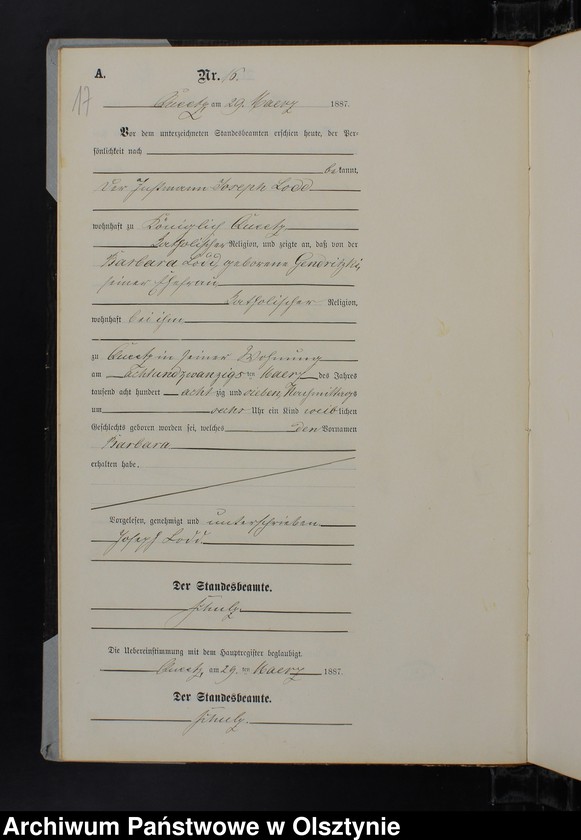 A. Nr. 16.
17
Queetz am 29. Maerz 1887.
Vor dem unterzeichneten Standesbeamten erschien heute, der Per-
sönlichkeit nach
bekannt,
der Instmann Joseph Lodd
wohnhaft zu Königlich Queetz
katholischer Religion, und zeigte an, daß von der
Barbara Lodd, geborene Gendritzki,
seiner Ehefrau
katholischer Religion,
wohnhaft bei ihm
zu Queetz in seiner Wohnung
am achtundzwanzigsten Maerz des Jahres
tausend acht hundert achtzig und sieben, Nachmittags
um sechs Uhr ein Kind weiblichen
Geschlechts geboren worden sei, welches den Vornamen
Barbara
erhalten habe.
Vorgelesen, genehmigt und unterschrieben
Joseph Lodd
Der Standesbeamte.
Schulz
Die Uebereinstimmung mit dem Hauptregister beglaubigt.
Queetz, am 29. ten Maerz 1887.
Der Standesbeamte.
Schulz.
Archiwum Państwowe w Olsztynie